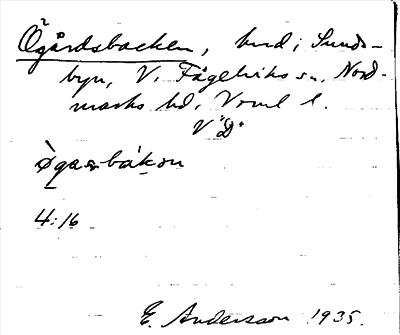 Ögårdsbacken, hvd i Sunds-
byn, V. Fågelviks sn, Nord-
marks hd, Vrml l.
V "D"
øgasbákon
4:16
E. Andersson 1935.